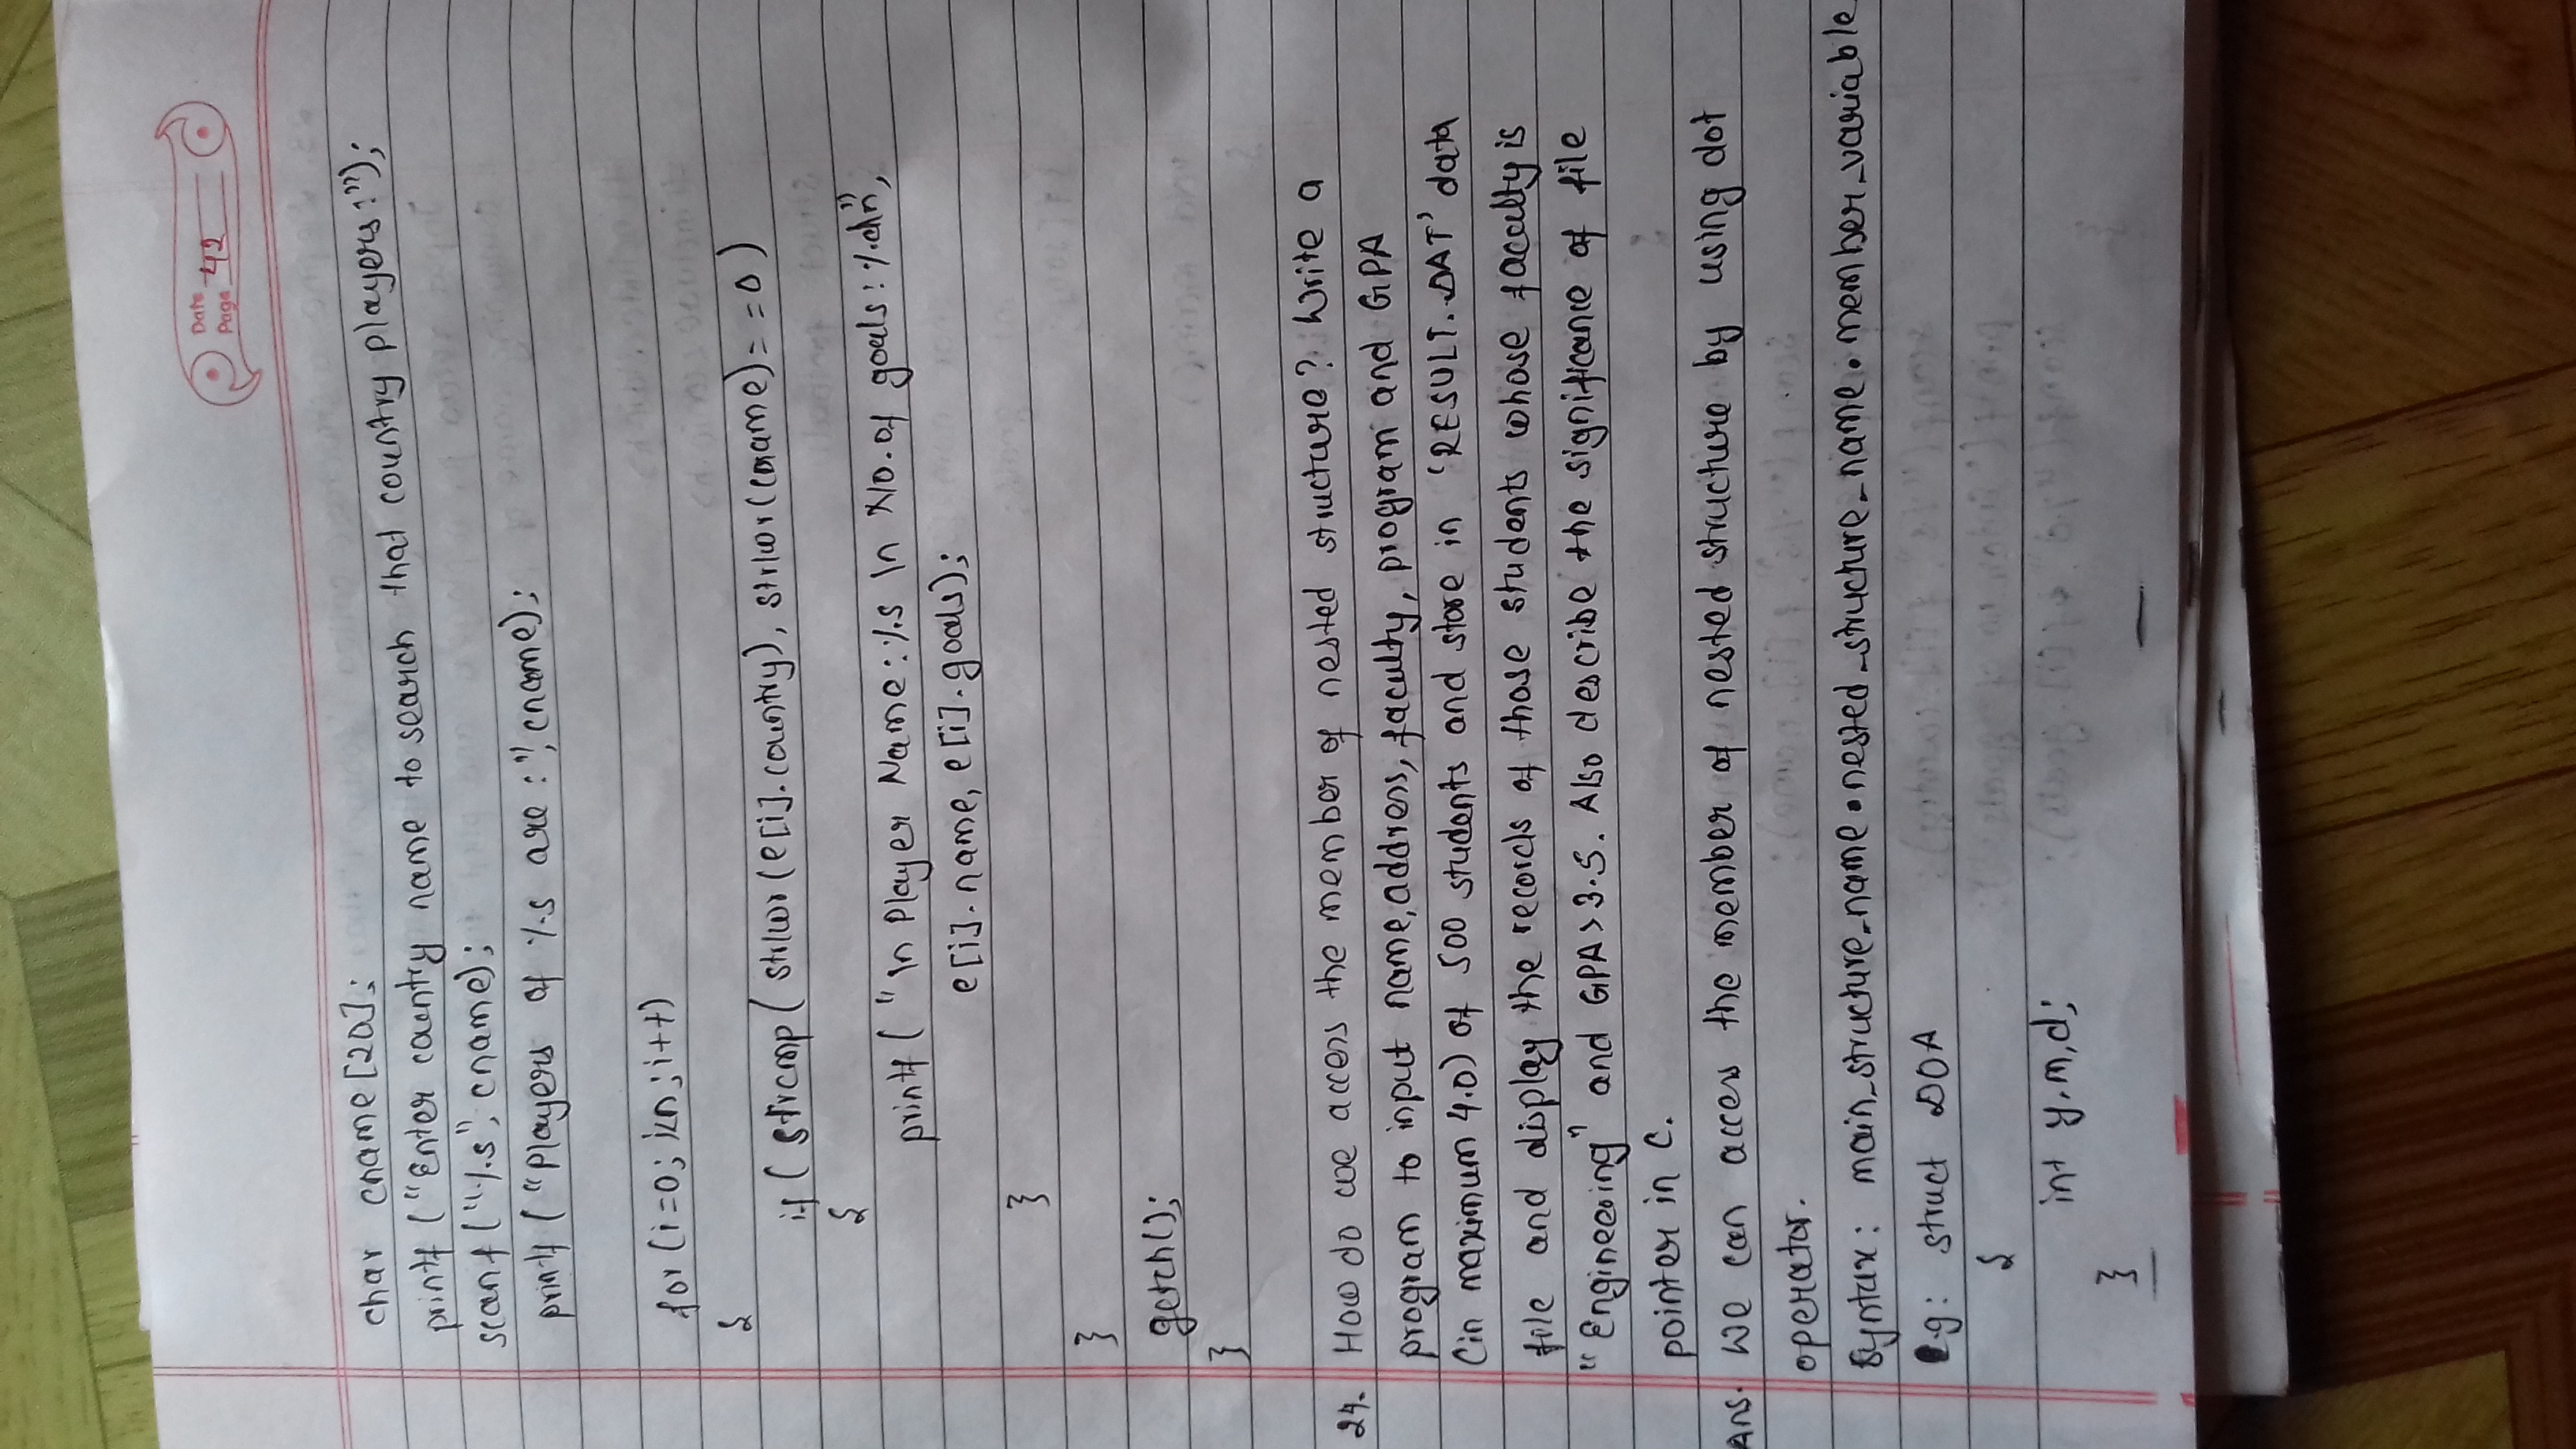 Date
Page 42
char cname[20];
printf ("Enter country name to search that country players:");
scanf("%s", cname);
printf ("Players of %s are :", cname);
for (i=0; i<n; i++)
{
if ( strcmp ( strlwr (e[i].country), strlwr (cname) = = 0 )
{
printf ( "\n Player Name: %s \n No. of goals: %d\n",
e[i]. name, e[i]. goals);
}
}
getch();
}
24. How do we access the member of nested structure? Write a
program to input name, address, faculty, program and GPA
(in maximum 4.0) of 500 students and store in 'RESULT.DAT' data
file and display the records of those students whose faculty is
"Engineering" and GPA > 3.5. Also describe the significance of file
pointer in C.
Ans. We can access the member of nested structure by using dot
operator.
Syntax: main_structure_name.nested_structure_name.member_variable
e.g: struct DOA
{
int y,m,d;
}